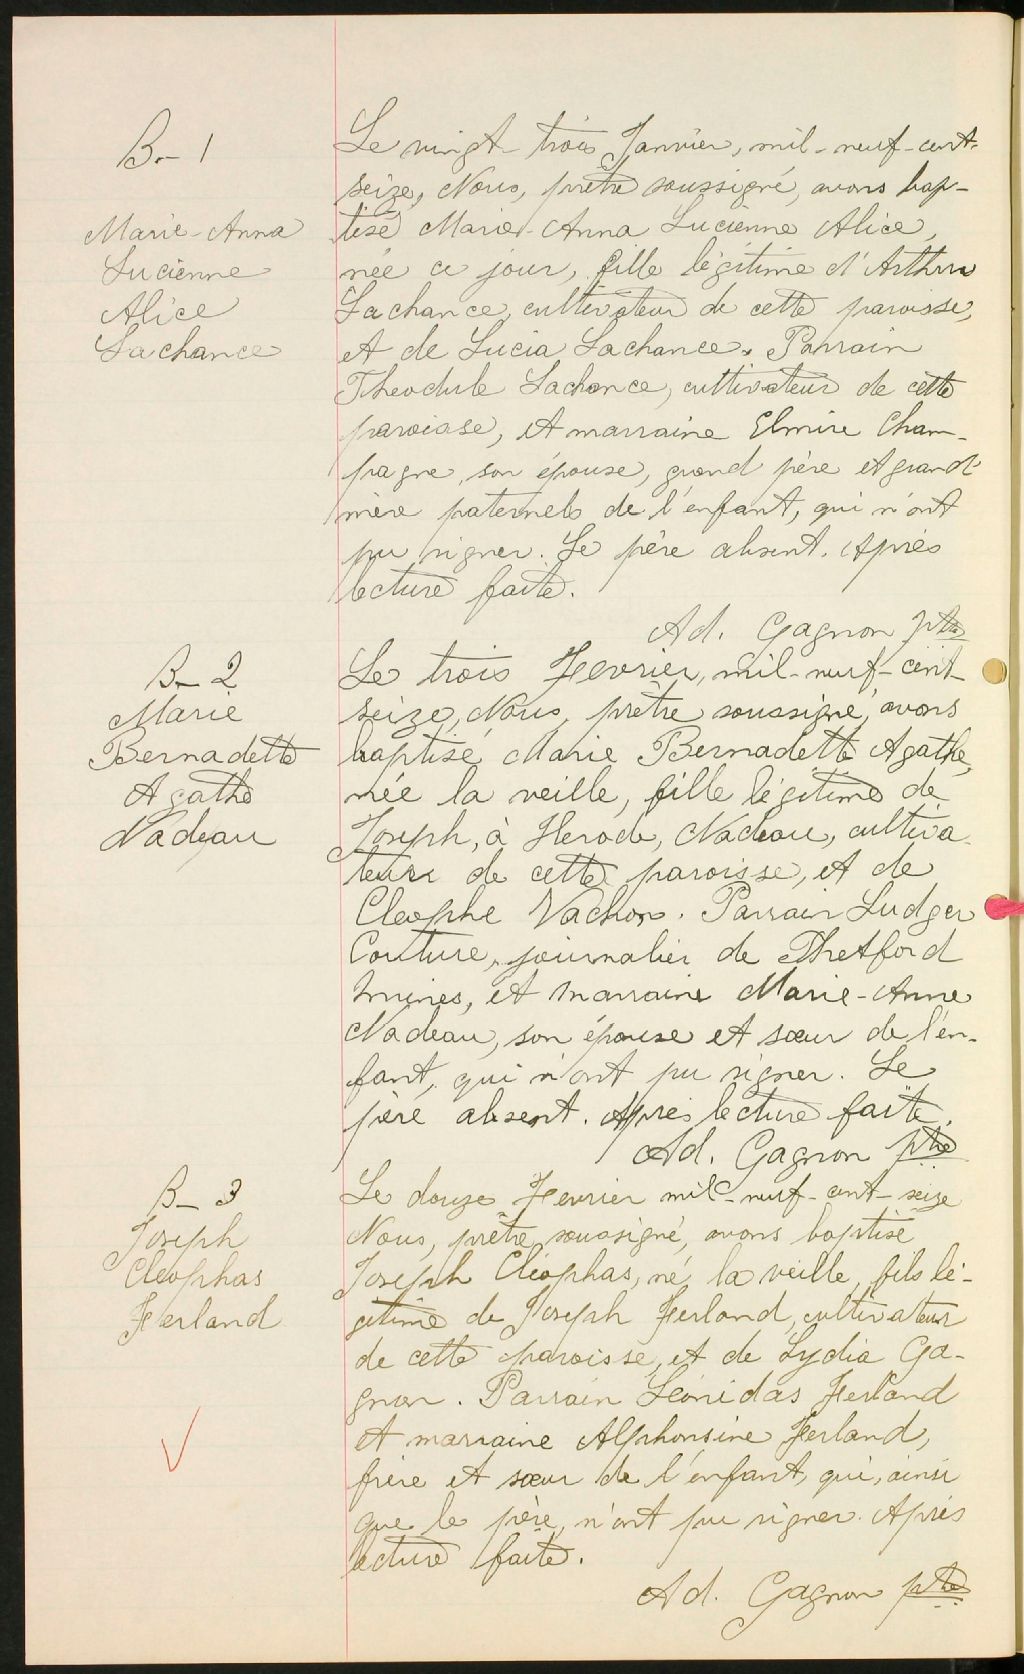 B-1
Marie-Anna
Lucienne
Alice
Lachance
Le vingt-trois Janvier, mil-neuf-cent-
seize, Nous, prêtre soussigné, avons bap-
tisé Marie-Anna Lucienne Alice,
née ce jour, fille légitime d'Arthur
Lachance, cultivateur de cette paroisse,
et de Lucia Lachance. Parrain
Theodule Lachance, cultivateur de cette
paroisse, et marraine Elmire Cham-
pagne, son épouse, grand père et grand'
mère paternels de l'enfant, qui n'ont
pu signer. Le père absent. Après
lecture faite.
Ad. Gagnon ptre
B-2
Marie
Bernadette
Agathe
Nadeau
Le trois Fevrier, mil-neuf-cent-
seize, Nous, prêtre soussigné, avons
baptisé Marie Bernadette Agathe,
née la veille, fille légitime de
Joseph, à Herode, Nadeau, cultiva
teur de cette paroisse, et de
Cleophe Vachon. Parrain Ludger
Couture, journalier de Thetford
mines, et marraine Marie-Anne
Nadeau, son épouse et sœur de l'en-
fant, qui n'ont pu signer. Le
père absent. Après lecture faite.
Ad. Gagnon ptre
B-3
Joseph
Cléophas
Ferland
Le douze Fevrier mil-neuf-cent-seize
Nous, prêtre soussigné, avons baptisé
Joseph Cléophas, né la veille, fils lé-
gitime de Joseph Ferland, cultivateur
de cette paroisse, et de Lydia Ga-
gnon. Parrain Léonidas Ferland
et marraine Alphonsine Ferland,
frère et sœur de l'enfant, qui, ainsi
que le père, n'ont pu signer. Après
lecture faite.
Ad. Gagnon ptre